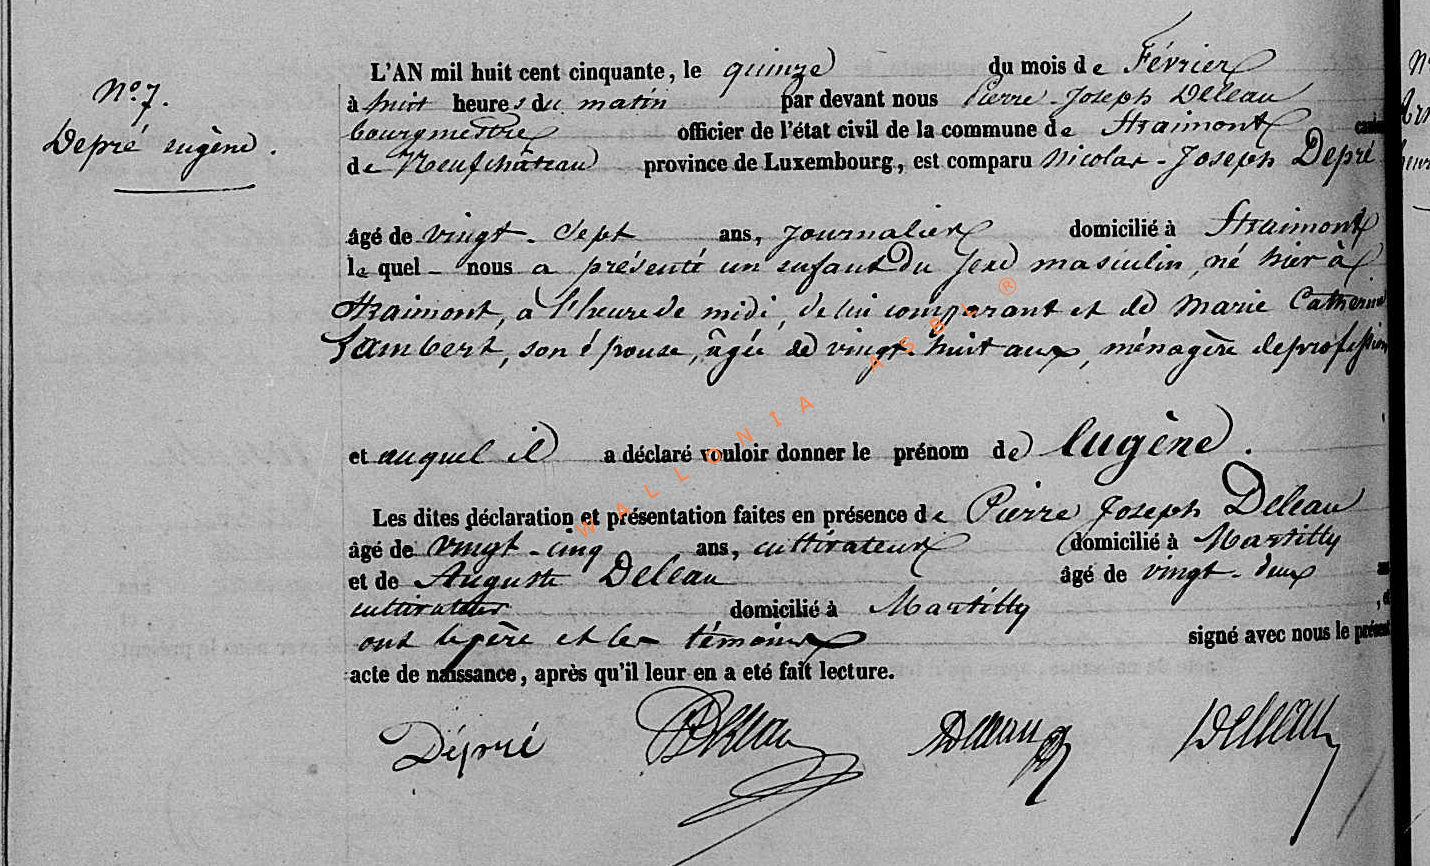 N° 7.
Depré Eugène.
L'AN mil huit cent cinquante, le quinze du mois de Février
à huit heures du matin par devant nous Pierre-Joseph Deleau
bourgmestre officier de l'état civil de la commune de Straimont
de Neufchâteau province de Luxembourg, est comparu Nicolas-Joseph Depré
âgé de vingt-sept ans, journalier domicilié à Straimont
lequel nous a présenté un enfant du sexe masculin, né hier à
Straimont, à l'heure de midi, de lui comparant et de Marie Catherine
Lambert, son épouse, âgée de vingt-huit ans, ménagère de profession
et auquel il a déclaré vouloir donner le prénom de Eugène.
Les dites déclaration et présentation faites en présence de Pierre Joseph Deleau
âgé de vingt-cinq ans, cultivateur domicilié à Martilly
et de Auguste Deleau âgé de vingt-deux
cultivateur domicilié à Martilly
ont le père et les témoins signé avec nous le présent
acte de naissance, après qu'il leur en a eté fait lecture.
Dépré PJDeleau ADeleau Deleau
WALLONIA ASBL ®